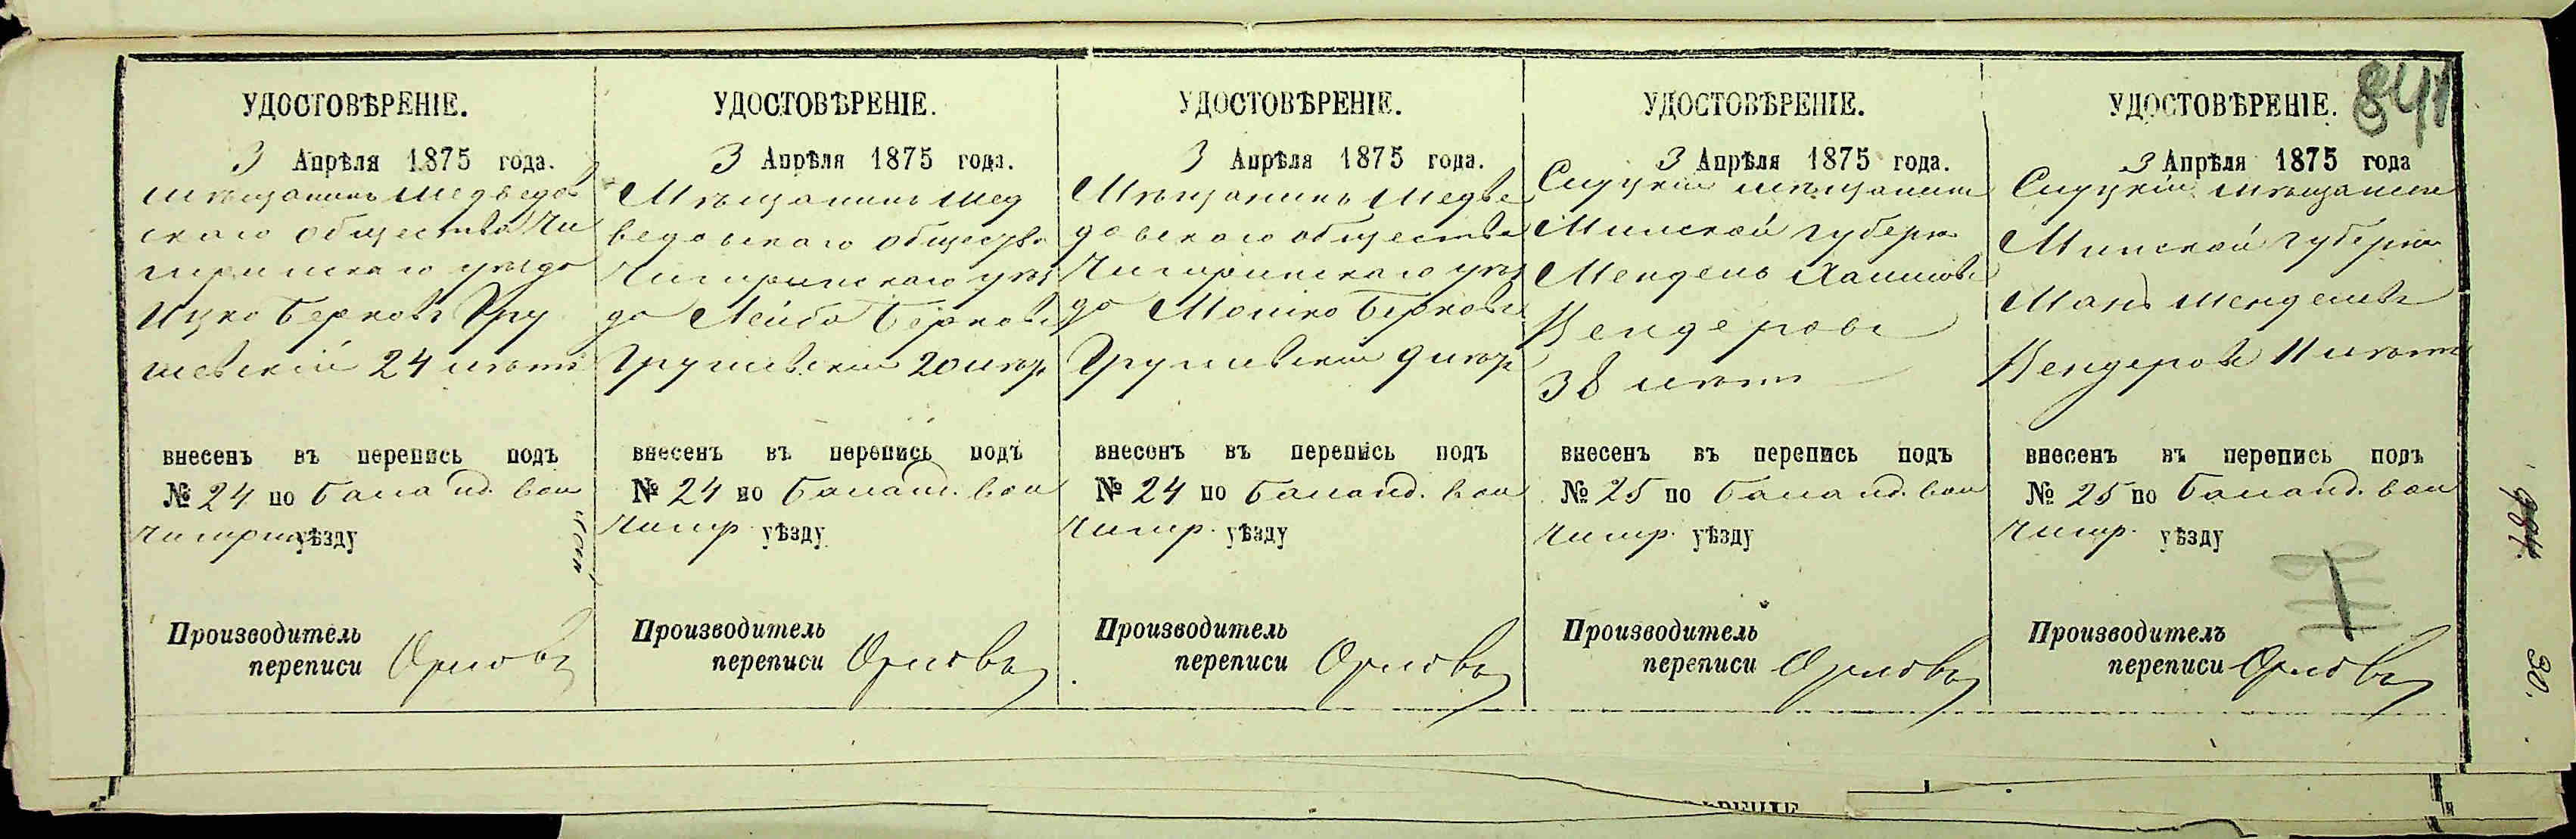 УДОСТОВѢРЕНІЕ.
3 Апрѣля 1875 года.
Мѣщанинъ Медведов
скаго общества Чи
гиринскаго уѣзда
Ицко Берковъ Гру
шевскій 24 лѣтъ
внесенъ въ перепись подъ
№ 24 по Баланд. вол
Чигрин уѣзду
Производитель
переписи Орловъ
УДОСТОВѢРЕНІЕ.
3 Апрѣля 1875 года.
Мѣщанинъ Мед
ведовскаго общества
Чигиринскаго уѣз
да Лейба Берковъ
Грушевскій 20 лѣтъ
внесенъ въ перепись подъ
№ 24 по Баланд. вол
Чигир уѣзду
Производитель
переписи Орловъ
УДОСТОВѢРЕНІЕ.
3 Апрѣля 1875 года.
Мѣщанинъ Медве
довскаго общества
Чигиринскаго уѣз
да Мошко Берковъ
Грушевскій 9 лѣтъ
внесенъ въ перепись подъ
№ 24 по Баланд. вол
Чигир. уѣзду
Производитель
переписи Орловъ
УДОСТОВѢРЕНІЕ.
3 Апрѣля 1875 года.
Слуцкій мѣщанинъ
Минской губерн
Мендель Хаимовъ
Вендеровъ
38 лѣтъ
внесенъ въ перепись подъ
№ 25 по Баланд. вол
Чигир. уѣзду
Производитель
переписи Орловъ
841
УДОСТОВѢРЕНІЕ.
3 Апрѣля 1875 года
Слуцкій мѣщанинъ
Минской губерн
Менделевъ
Вендеровъ 11 лѣтъ
внесенъ въ перепись подъ
№ 25 по Баланд. вол
Чигир. уѣзду
Производитель
переписи Орловъ
30.